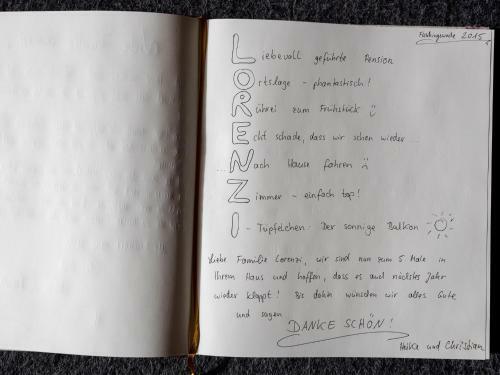 Faschingswoche 2015
Liebevoll geführte Pension
Ortslage - phantastisch!
Rührei zum Frühstück :)
Echt schade, dass wir schon wieder ...
... Nach Hause fahren :(
Zimmer - einfach top!
I - Tüpfelchen: Der sonnige Balkon
Liebe Familie Lorenzi, wir sind nun zum 5. Male in
Ihrem Haus und hoffen, dass es auch nächstes Jahr
wieder klappt! Bis dahin wünschen wir alles Gute
und sagen
DANKE SCHÖN!
Heika und Christian